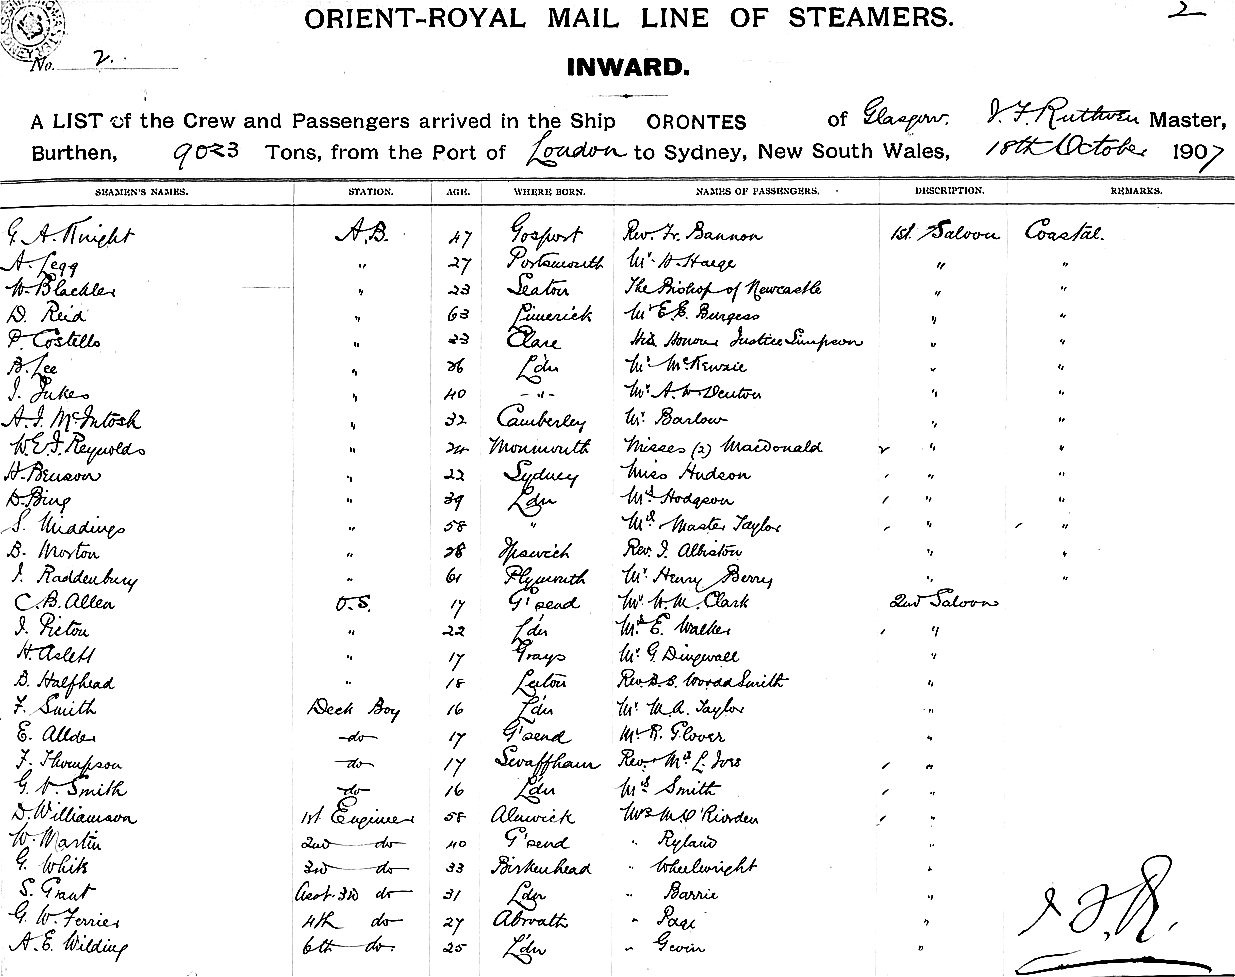 2
No. 2.
ORIENT-ROYAL MAIL LINE OF STEAMERS.
INWARD.
A LIST of the Crew and Passengers arrived in the Ship ORONTES of Glasgow. J. F. Ruthven Master,
Burthen, 9023 Tons, from the Port of London to Sydney, New South Wales, 18th October 1907
SEAMEN'S NAMES. STATION. AGE. WHERE BORN. NAMES OF PASSENGERS. DESCRIPTION. REMARKS.
G. A. Knight A.B. 47 Gosport Rev. Fr. Bannon 1st. Saloon Coastal.
A. Legg " 27 Portsmouth Mr. D. Haege " "
W. Blackler " 23 Seaton The Bishop of Newcastle " "
D. Reid " 63 Limerick Mr. E. E. Burgess " "
P. Costello " 23 Clare His Honour Justice Simpson " "
B. Lee " 26 L'dn Mr. McKenzie " "
J. Jukes " 40 -"- Mr. A. W. Denton " "
A. J. McIntosh " 32 Camberley Mr. Barlow " "
W. E. J. Reynolds " 24 Monmouth Misses (2) MacDonald " "
H. Benson " 22 Sydney Miss Hudson " "
D. Bing " 39 L'dn Mrs Hodgson " "
S. " 58 " Mrs. Master Taylor " "
B. Morton " 28 Ipswich Rev. J. " "
J. Raddenbury " 61 Plymouth Mr. Henry Berry " "
C. B. Allen O.S. 17 G'send Mr. W. M. Clark 2nd Saloon
J. Picton " 22 L'dn Mrs E. Walker "
H. Aslett " 17 Grays Mr. G. Dingwall "
B. Halfhead " 18 Rev. B. S. Woodd Smith "
F. Smith Deck Boy 16 L'dn Mr. M. A. Taylor "
E. Allder -do- 17 G'send Mr R. Glover "
F. Thompson -do- 17 Swaffham Rev. Mrs L. "
G. V. Smith -do- 16 L'dn Mrs Smith "
D. Williamson 1st Engineer 58 Alnwick Mrs M. O'Riorden "
W. Martin 2nd do- 40 G'send " Ryland "
G. White 3rd do- 33 Birkenhead " Wheelwright "
S. Grant Asst. 3rd do- 31 L'dn " Barrie "
G. W. Ferrier 4th do- 27 " Page "
A. E. Wilding 6th do- 25 L'dn " "
J. F. R.